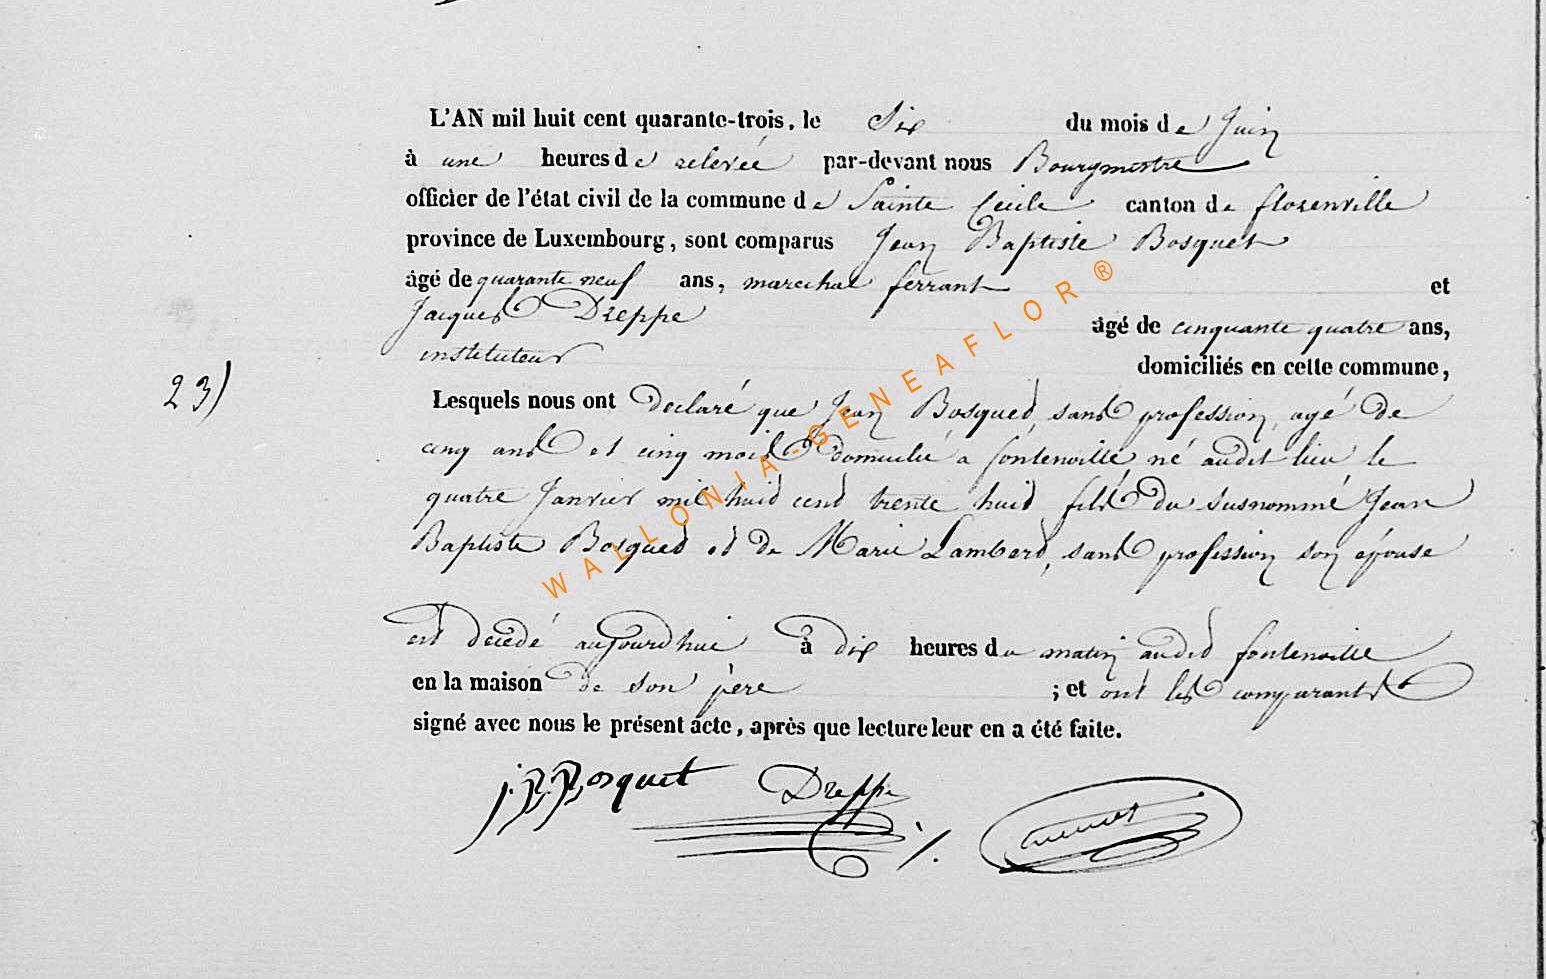 L'AN mil huit cent quarante-trois, le Six du mois de Juin
à une heures de relevée par-devant nous Bourgmestre
officier de l'état civil de la commune de Sainte Cécile canton de florenville
province de Luxembourg, sont comparus Jean Baptiste Bosquet
âgé de quarante neuf ans, marechal ferrant et
Jacques Dreppe âgé de cinquante quatre ans,
instituteur domiciliés en cette commune,
23)
Lesquels nous ont declaré que Jean Bosqued, sans profession, agé de
cinq ans et cinq mois domicilié a fontenoille né audit lieu le
quatre Janvier mil huid cend trente huid fils du susnommé Jean
Baptiste Bosqued ed de Marie Lamberd, sans profession son épouse
est decedé aujourd'hui à dix heures du matin audid fontenoille
en la maison de son père ; et ont les comparants
signé avec nous le présent acte, après que lecture leur en a été faite.
j.B.Bosquet Dreppe
WALLONIA-GENEAFLOR®